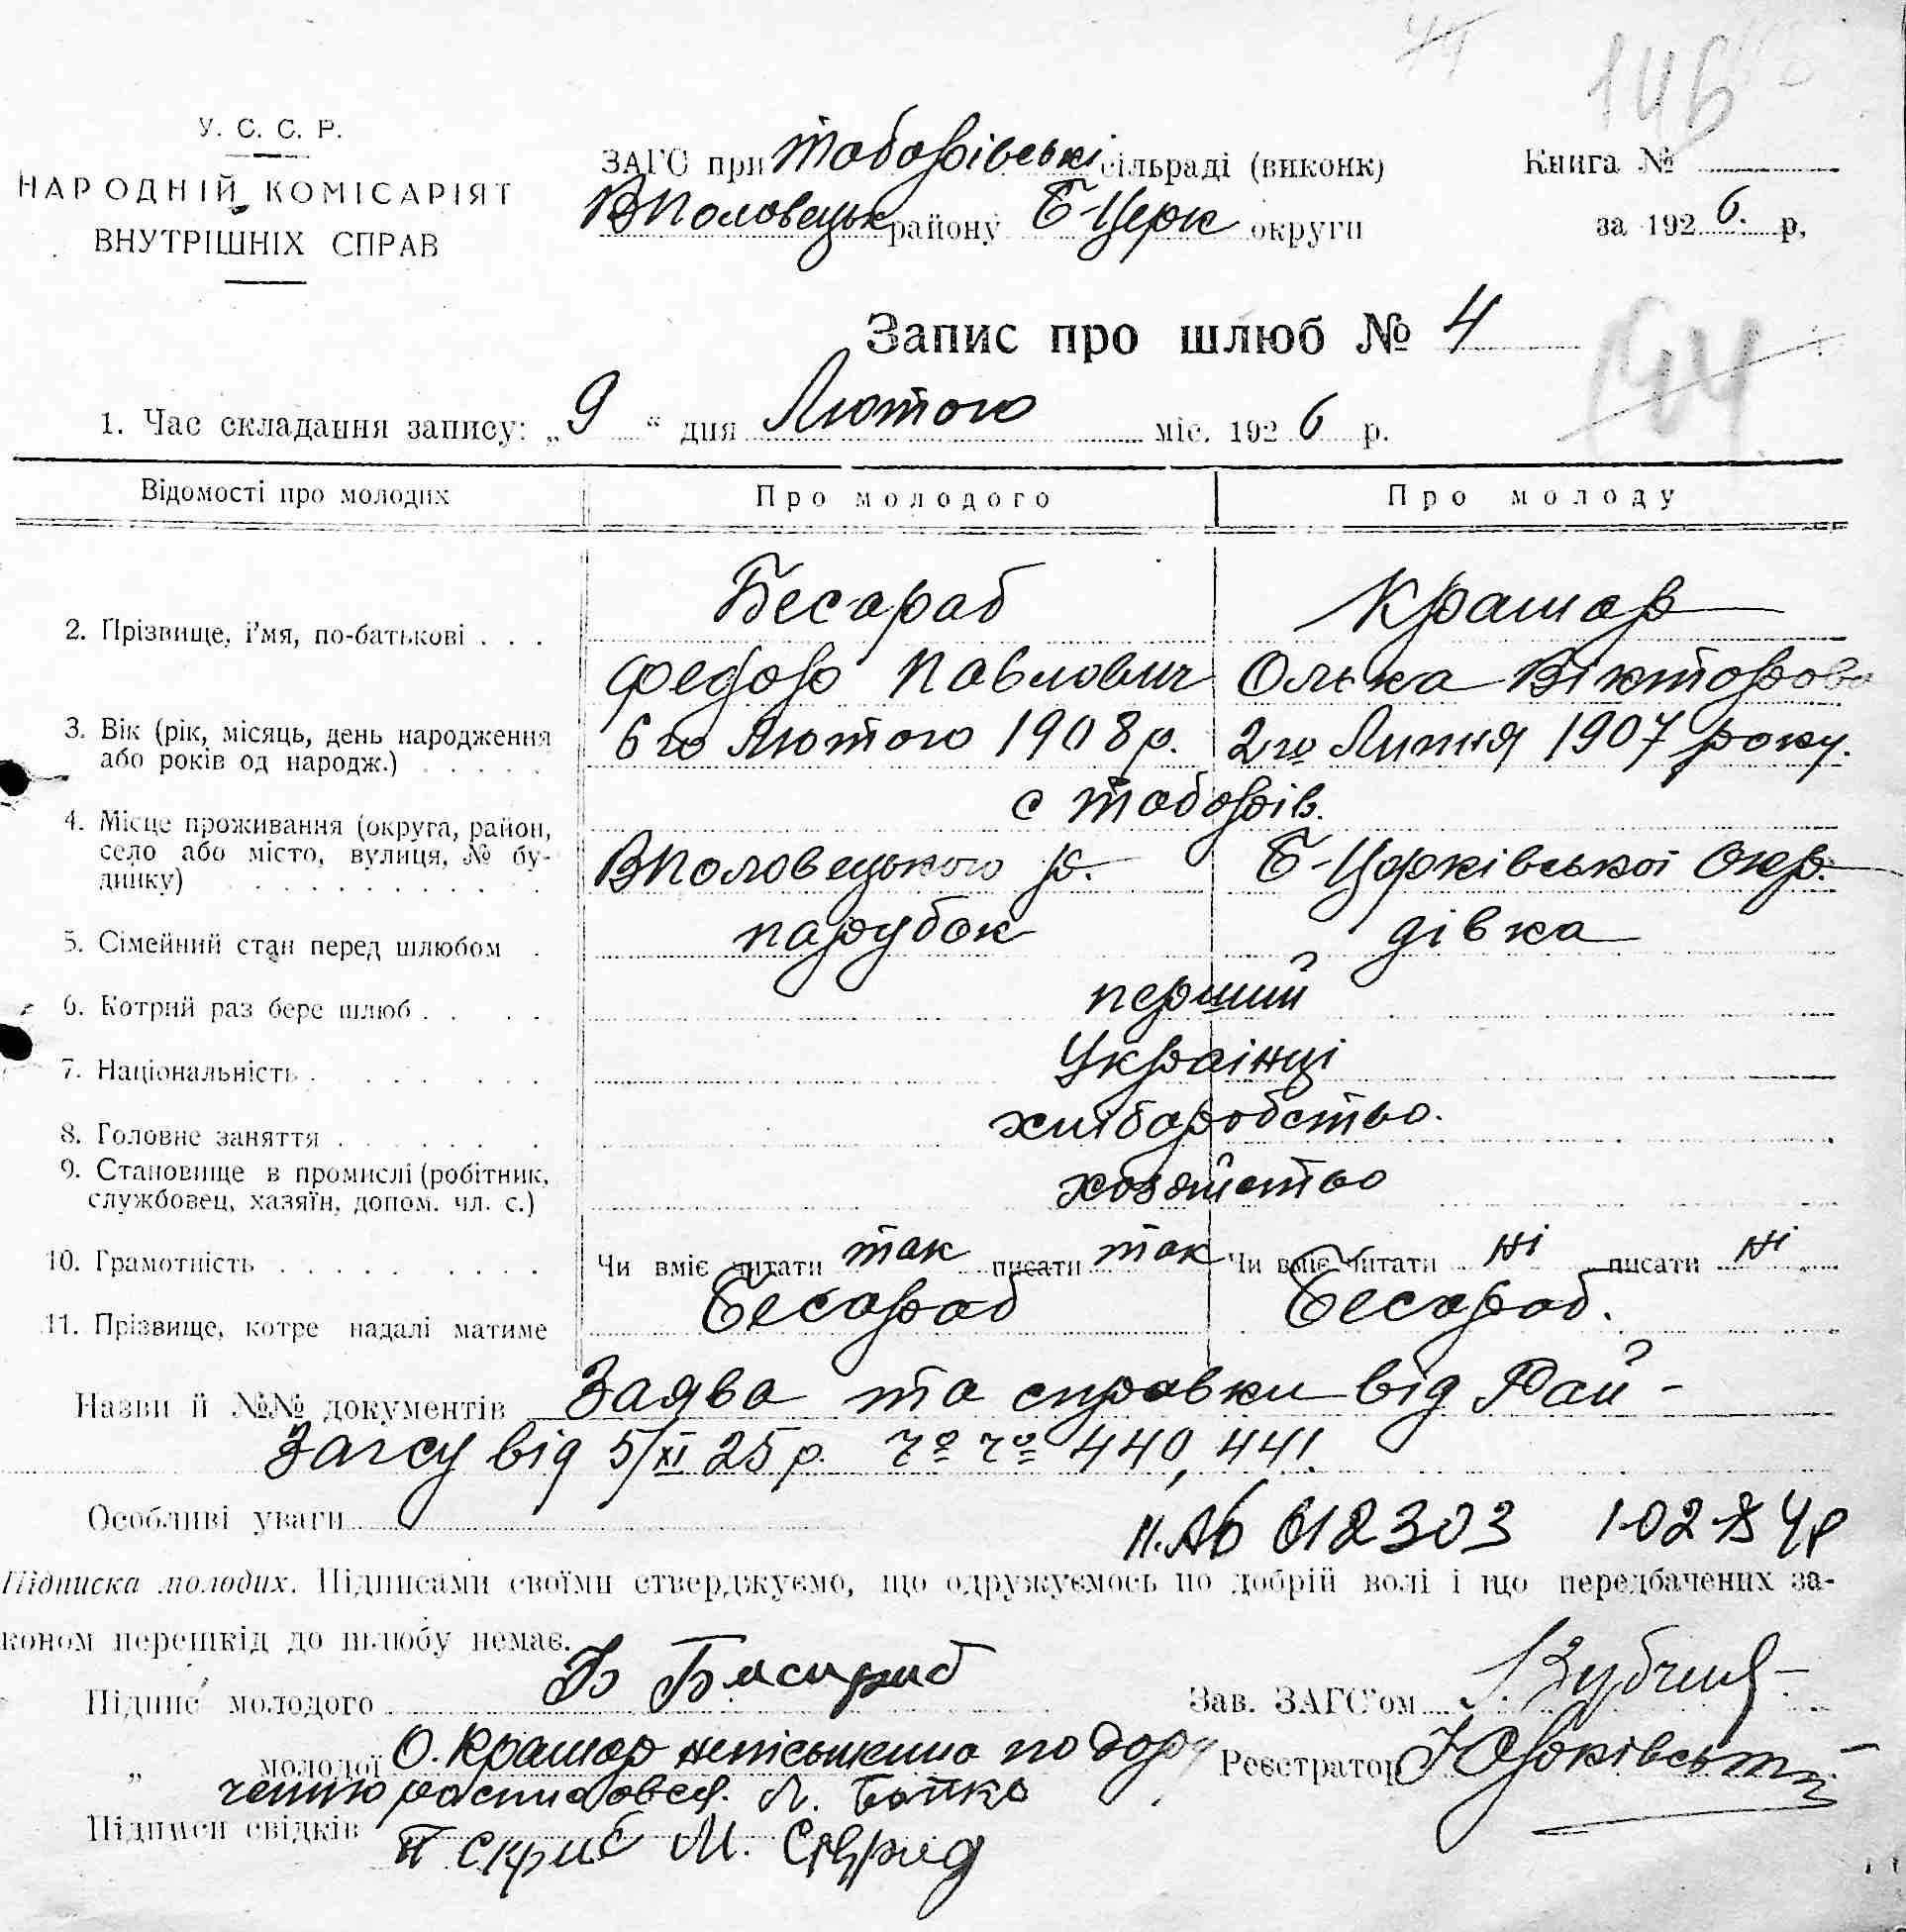 146
У. С. С. Р.
НАРОДНІЙ КОМІСАРІЯТ
ВНУТРІШНІХ СПРАВ
ЗАГС при Таборівські сільраді (виконк)
ВПоловецьк району Б-Церк округи
Книга №
за 1926. р,
Запис про шлюб № 4
144
1. Час складання запису: „9“ дня Лютого міс. 1926 р.
Відомості про молодих Про молодого Про молоду
2. Прізвище, і'мя, по-батькові . . . Бесараб Крамар
Федор Павлович Олька Вікторова
3. Вік (рік, місяць, день народження або років од народж.) 6го Лютого 1908 р. 2го Липня 1907 року.
4. Місце проживання (округа, район, село або місто, вулиця, № будинку) с Таборів.
ВПоловецького р. Б-Церківської Окр.
5. Сімейний стан перед шлюбом . парубок дівка
6. Котрий раз бере шлюб . перший
7. Національність . Українці
8. Головне заняття . хліборобство.
9. Становище в промислі (робітник, службовец, хазяїн, допом. чл. с.) хозяйство
10. Грамотність . Чи вміє читати так писати так Чи вміє читати ні писати ні
11. Прізвище, котре надалі матиме Бесараб Бесараб.
Назви й №№ документів Заява та справки від Рай-
Загсу від 5/XI 25 р. чо чо 440, 441.
Особливі уваги 612303
Підписка молодих. Підписами своїми стверджуємо, що одружуємось по добрій волі і що передбачених за-
коном перешкід до шлюбу немає.
Підпис молодого Бисараб
Зав. ЗАГС'ом
„ молодої О. Крамар неписьмена по дору
Реєстратор
чению росписався. Л. Бойко
Підписи свідків
М.